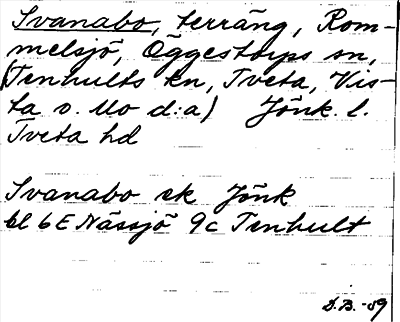 Svanabo, terräng, Rom-
melsjö, Öggestorps sn,
(Tenhults kn, Tveta, Vis-
ta o. Mo d:a) Jönk. l.
Tveta hd
Svanabo ek Jönk
bl 6E Nässjö 9c Tenhult
S.B. -59